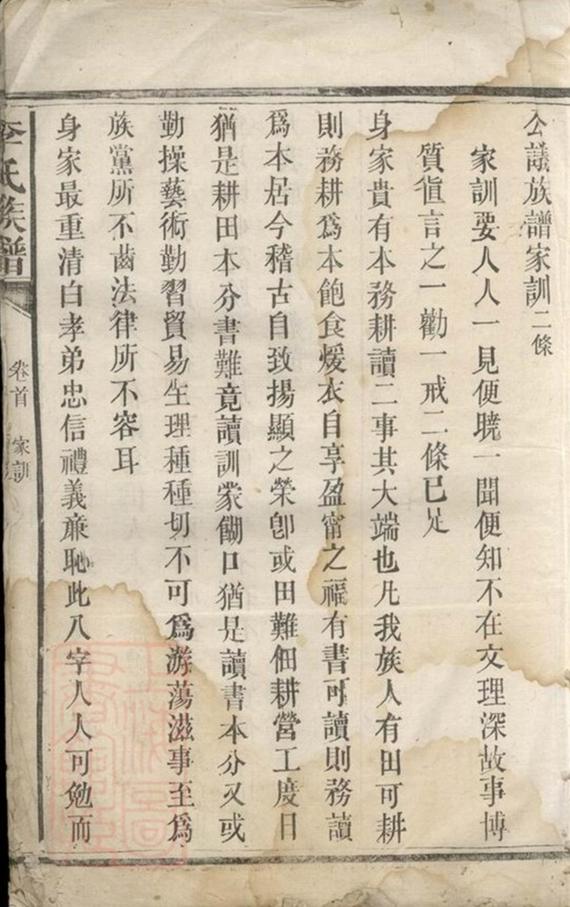 公議族譜家訓二條
家訓要人人一見便曉一聞便知不在文理深故事博
質直言之一勸一戒二條已足
身家貴有本務耕讀二事其大端也凡我族人有田可耕
則務耕爲本飽食煖衣自享盈甯之福有書可讀則務讀
爲本居今稽古自致揚顯之榮卽或田難佃耕營工度日
猶是耕田本分書難竟讀訓蒙餬口猶是讀書本分又或
勤操藝術勤習貿易生理種種切不可爲游蕩滋事至爲
族黨所不齒法律所不容耳
身家最重清白孝弟忠信禮義亷恥此八字人人可勉而
李氏族譜
卷首 家訓